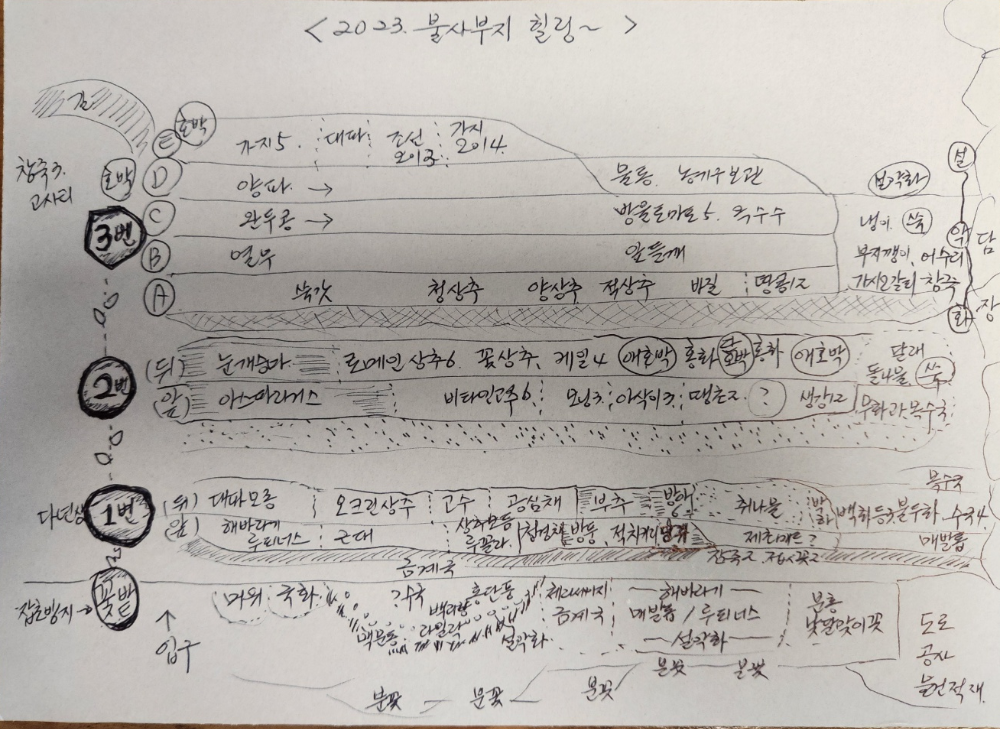 <2023. 불사부지 힐링~>
호박
E 가지5. 대파 조선오이3. 가지오이4.
참죽3. 고사티
호박 D 양파 → 물통. 농기구보관 보약화 설
3번 C 완두콩 → 방울토마토5. 옥수수 냉이. 쑥 약 담
B 열무 잎들깨 부지깽이. 어수리
A 쑥갓 청상추 양상추 적상추 바질 땅콩12 가시오갈피 참죽 화 장
2번 (뒤) 눈개승마 로메인 상추6 꽃상추. 케일4 애호박 홍화 호박 홍화 애호박 달래 돌나물. 쑥
(앞) 아스파라거스 비타민고추6. 오잉3. 아삭이3. 땡초2. ? 생강12 무화과 목수국
목수국
다년생 1번 (뒤) 대파모종 오크린상추 고수 공심채 부추 방아 취나물 박하 백화등3 불두화. 수국4
(앞) 해바라기 루피너스 근대 상추모종 루꼴라. 청경채 방풍 적치커리 매발톱
금계국 참죽2
잡초방지→ 꽃밭 머위 국화 ?수국 홍단풍 백리향 라일락 맥문동 설악화 금계국 해바라기 매발톱 / 루피너스 설악화 분홍 낮달맞이꽃
↑ 입구
도로 공사 물건적재.
분꽃 분꽃 분꽃 분꽃 분꽃